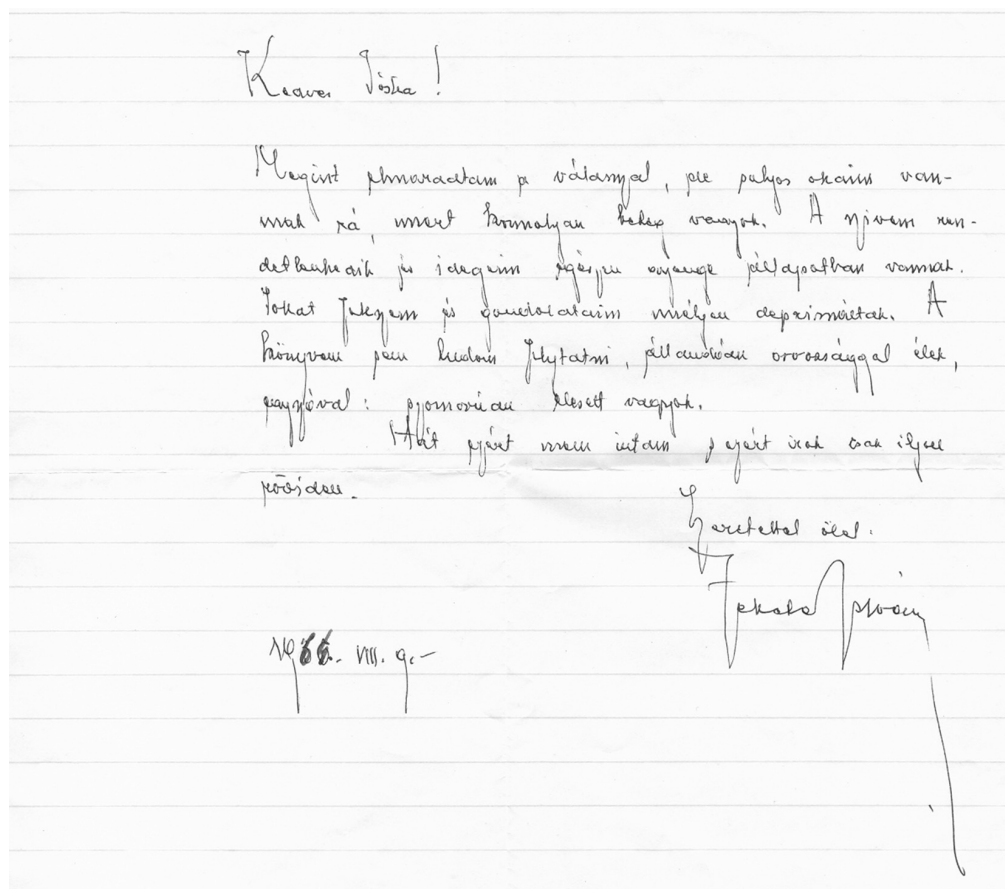 Kedves Jóska!
Megint elmaradtam a válasszal, de súlyos okaim van-
nak rá, mert komolyan beteg vagyok. A szívem ren-
detlenkedik és idegeim egészen gyenge állapotban vannak.
Sokat fekszem és gondolataim mélyen deprimáltak. A
könyvem sem tudom folytatni, állandóan orvossággal élek,
egyszóval: szomorúan elesett vagyok.
Hát ezért nem írtam s ezért írok csak ilyen
röviden.
Szeretettel ölel:
Fekete István
1966. VIII. 9.-